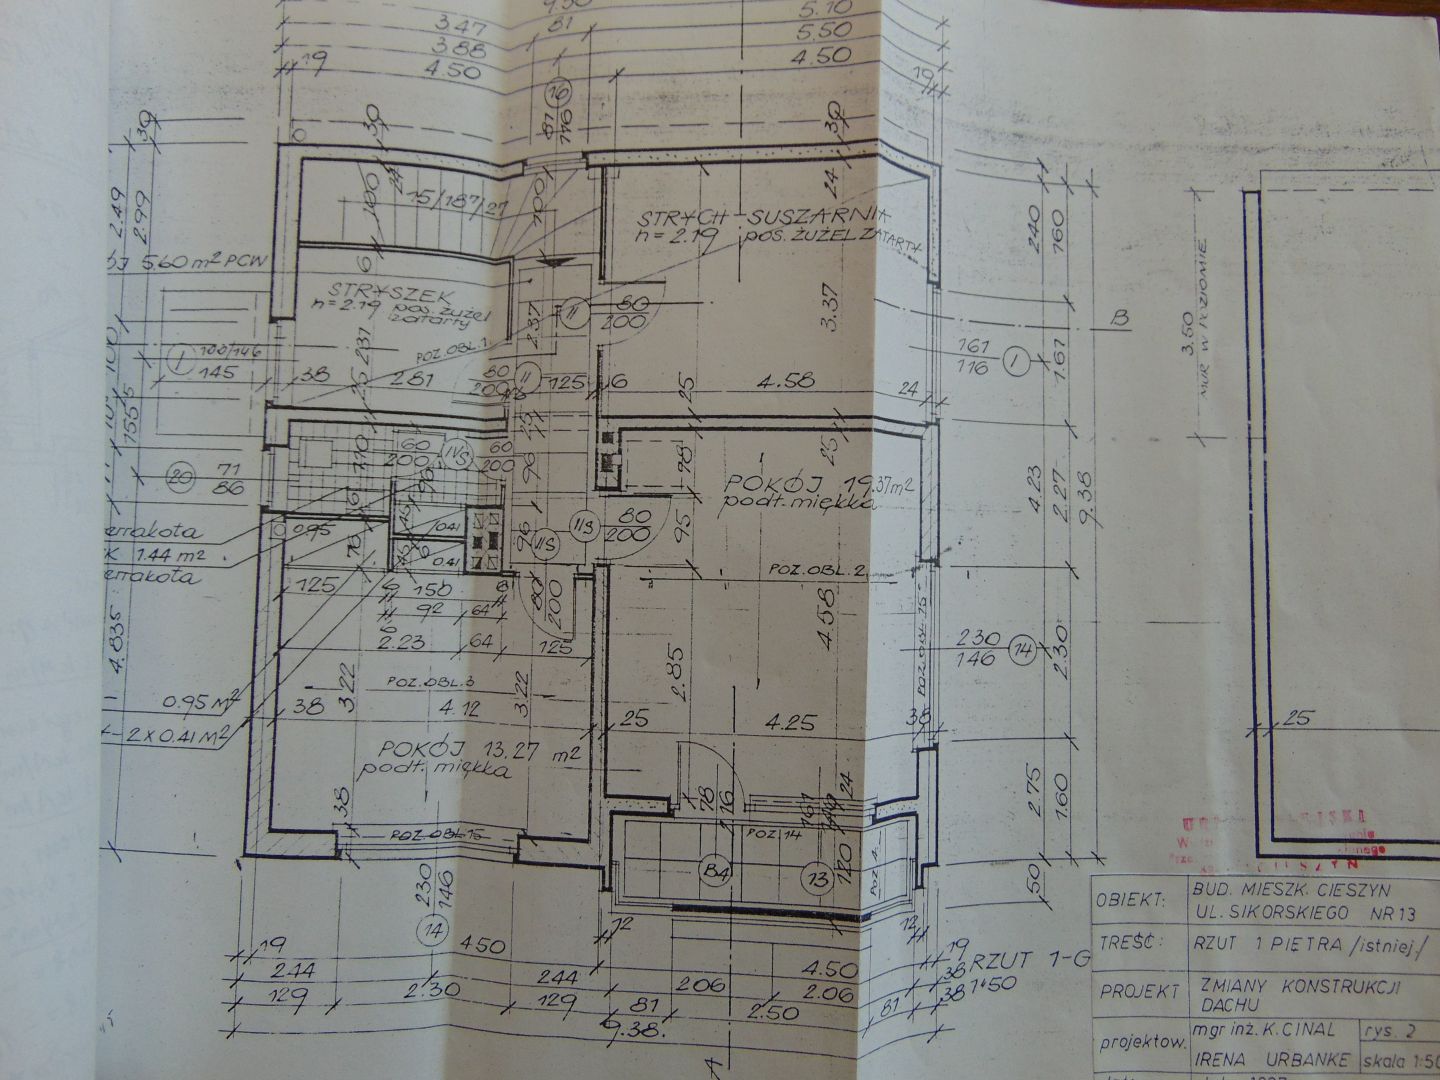 9.50
5.10
3.47
81
5.50
3.88
4.50
4.50
19
19
16
81
146
30
30
30
2.49
2.99
24
100
15/187/27
100
24
STRYCH - SUSZARNIA
h = 2.19 pos. ŻUŻEL ZATARTY
240
160
5.60 m² PCW
6
STRYSZEK
h = 2.19 pos. żużel
zatarty
11
80
200
237
3.37
3.60
MUR W POZIOMIE
B
1
100/146
145
38
25
237
281
POZ. OBL. 1
80
200
11
125
6
25
4.58
24
161
116
1
1.61
155
20
71
86
110
60
200
IVS
60
200
25
96
98
25
POKÓJ 19.37m²
podł. miękka
4.23
2.27
9.38
errakota
0.95
K 1.44 m²
errakota
76
45
0.41
45
6
0.41
96
11/S
11/3
80
200
95
POZ. OBL. 2
125
6
150
92
64
80
200
2.23
64
125
4.835
3.22
POZ. OBL. 3
3.22
2.85
4.58
POZ. OBL. 15
230
146
14
2.30
0.95 M²
2 x 0.41 M²
38
4.12
25
4.25
38
25
POKÓJ 13.27 m²
podł. miękka
38
POZ. OBL. 15
78
216
161
24
POZ. 14
275
1.60
B4
13
120
POZ. 4
50
230
146
14
12
12
19
450
244
244
4.50
206
2.06
19
38
38
129
2.30
129
81
2.50
81
9.38
A
RZUT 1-G
1:50
OBIEKT: BUD. MIESZK. CIESZYN
UL. SIKORSKIEGO NR 13
TREŚĆ: RZUT 1 PIĘTRA /istniej./
PROJEKT ZMIANY KONSTRUKCJI
DACHU
projektow. mgr inż. K. CINAL rys. 2
IRENA URBANKE skala 1:50